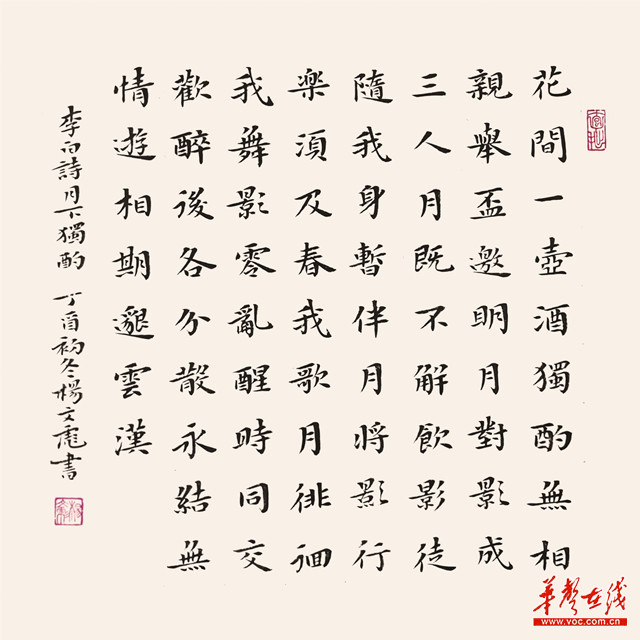 花間一壺酒獨酌無相
親舉盃邀明月對影成
三人月既不解飲影徒
隨我身暫伴月將影行
楽湏及春我歌月徘徊
我舞影零亂醒時同交
歡醉後各分散永結無
情遊相期邈雲漢
李白詩月下獨酌 丁酉初冬楊文書
華聲在线
www.voc.com.cn